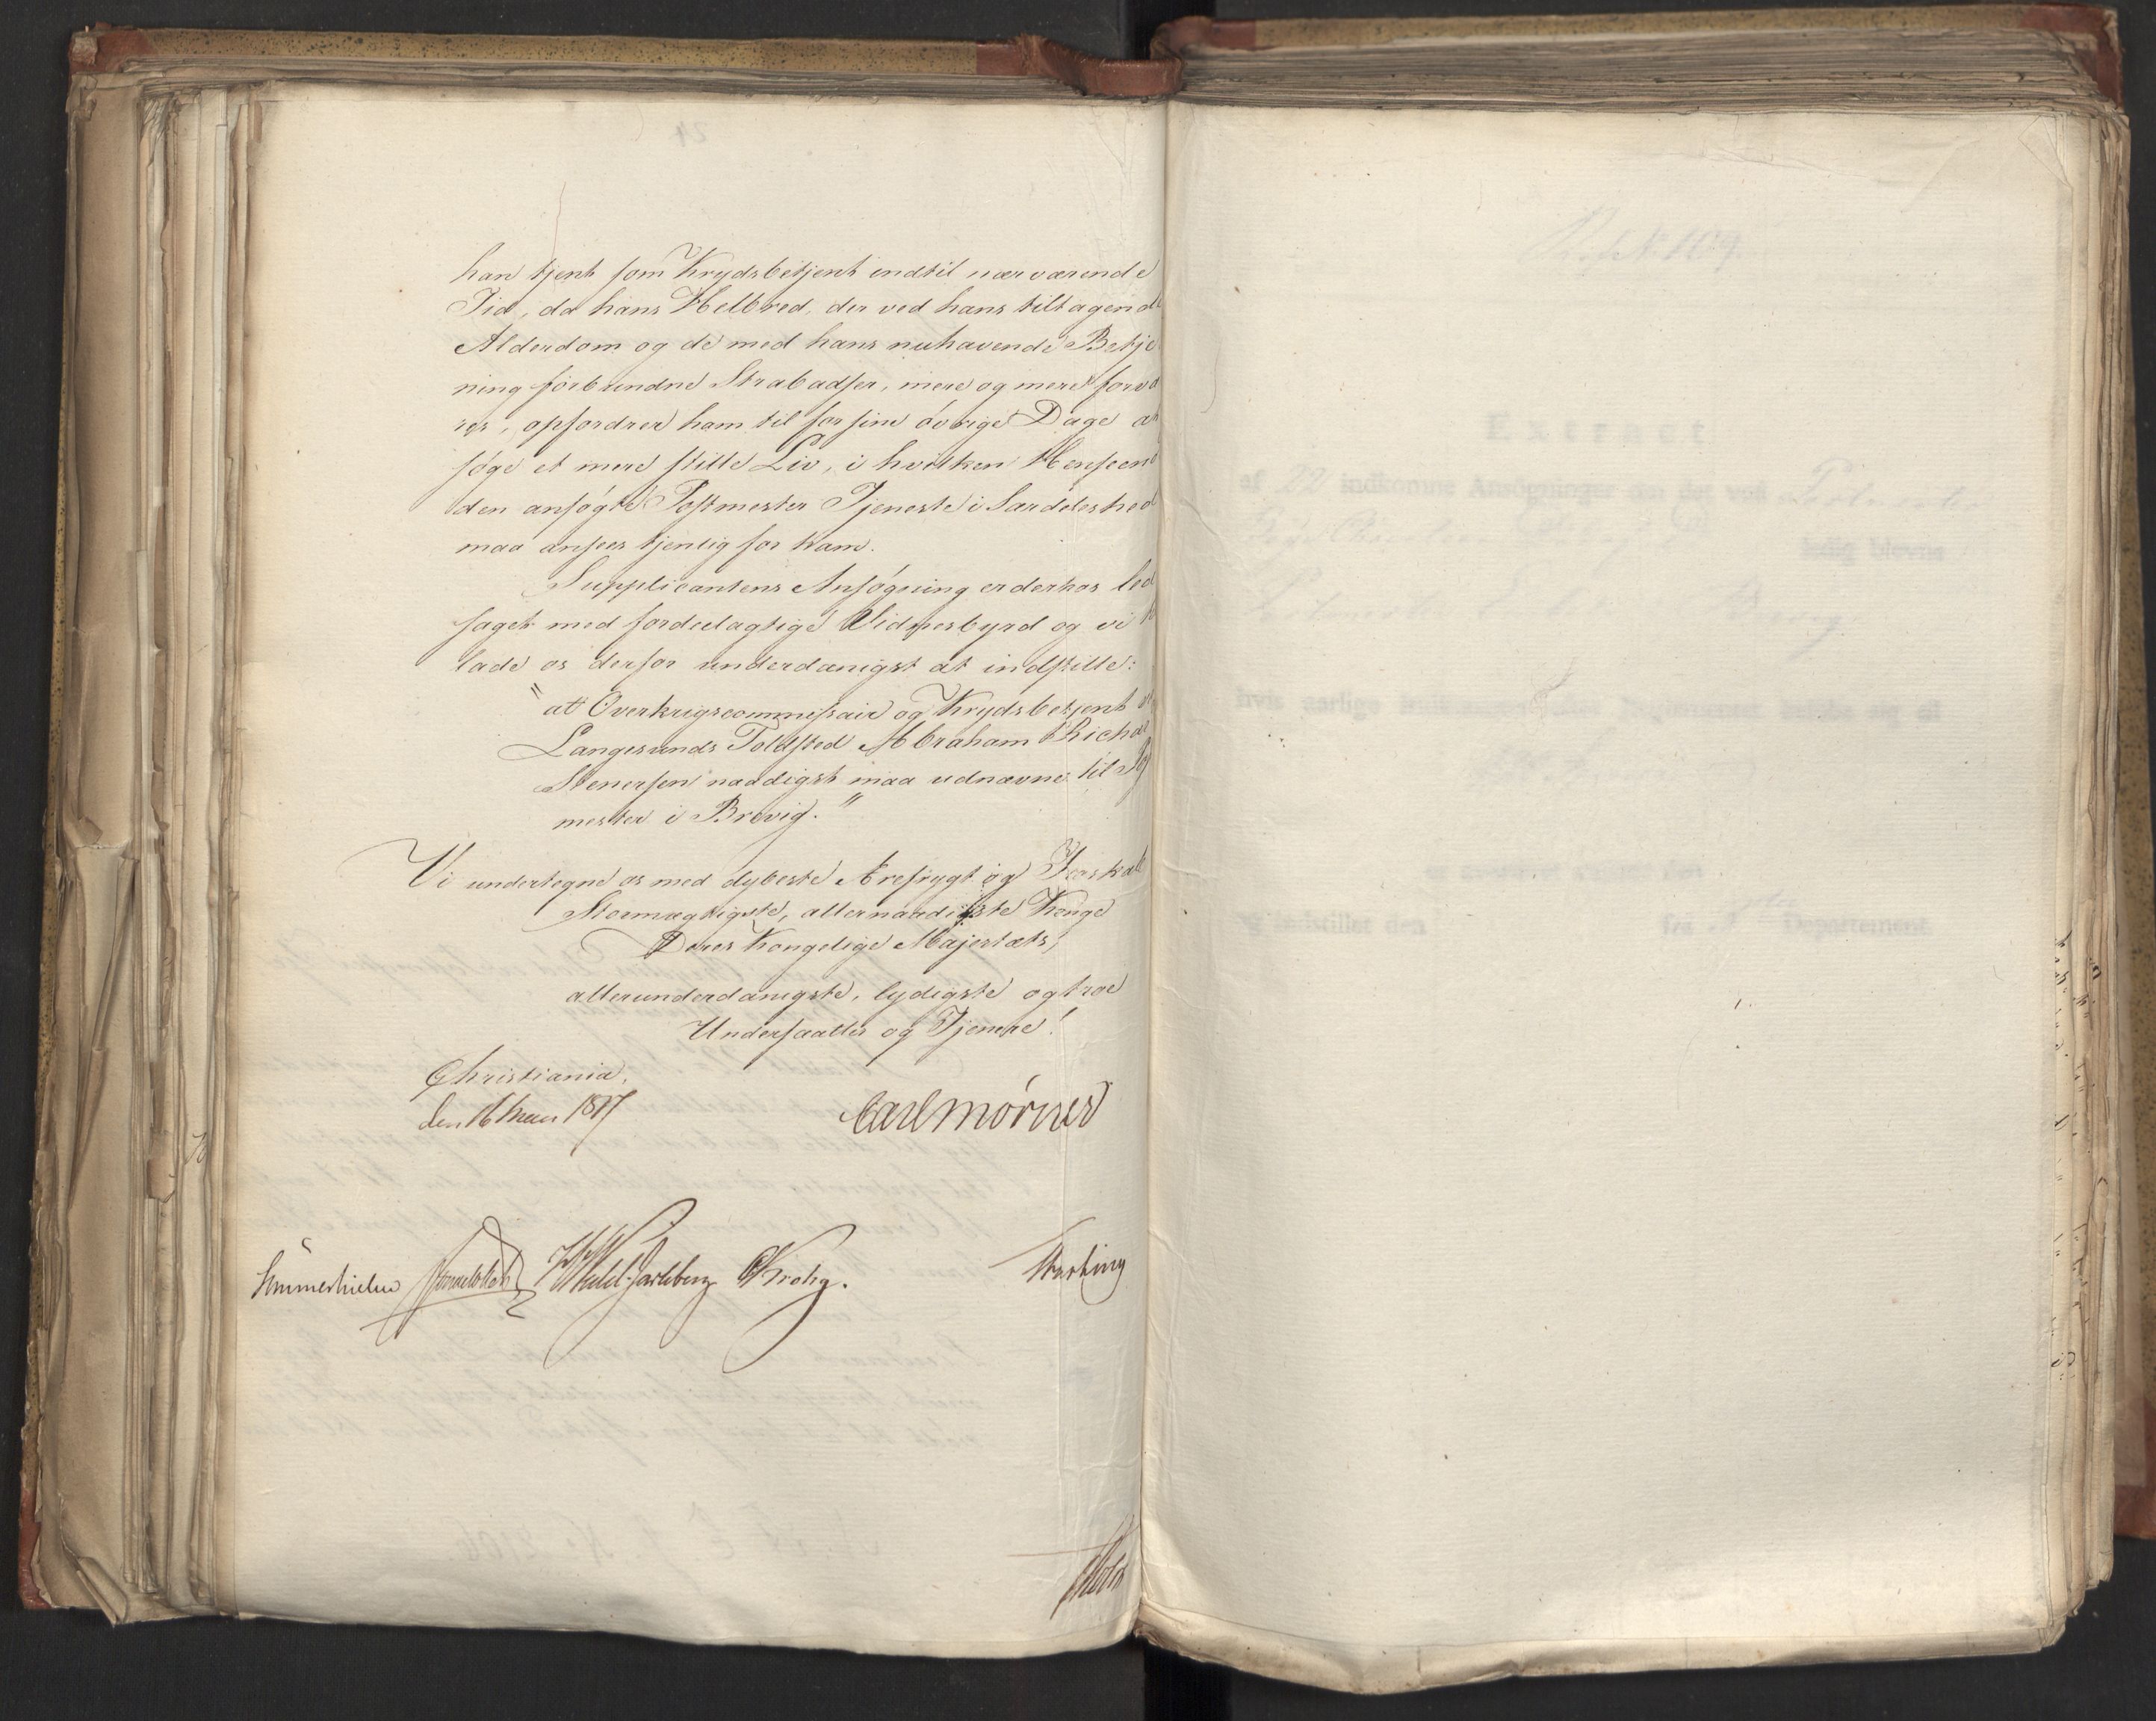 han tjent som Krydsbetjent indtil nærværende
Tid, da hans Helbred, der ved hans tiltagende
Alderdom og de med hans nuhavende Betje
ning forbundne Strabadser, mere og mere forvær
res, opfordrer ham til for sine øvrige Dage at
søge et mere stille Liv, i hvilken Henseende
den ansøgte Postmester Tjeneste i Særdeleshed
maa ansees tjenlig for ham.
Supplicantens Ansøgning er derhos led
saget med fordeelagtige Vidnesbyrd og vi
lade os derfor underdanigst at indstille:
"at Overkrigscommissair og Krydsbetjent
Langesunds Toldsted Abraham Richard
Stenersen naadigst maa udnævnes til Post
mester i Brevig."
Vi undertegne os med dybeste Ærefrygt og Troskab
Stormægtigste, allernaadigste Konge
Deres Kongelige Majestæts,
allerunderdanigste, lydigste og troe
Undersaatter og Tjenere!
Christiania,
den 16 1817
Carl Mörner
Sommerhielm Wedel-Jarlsberg CKrohg.
Extract
af 22 indkomne Ansøgninger om det ved
ledig blevne
hvis aarlige sig til
og indstillet den fra Departement